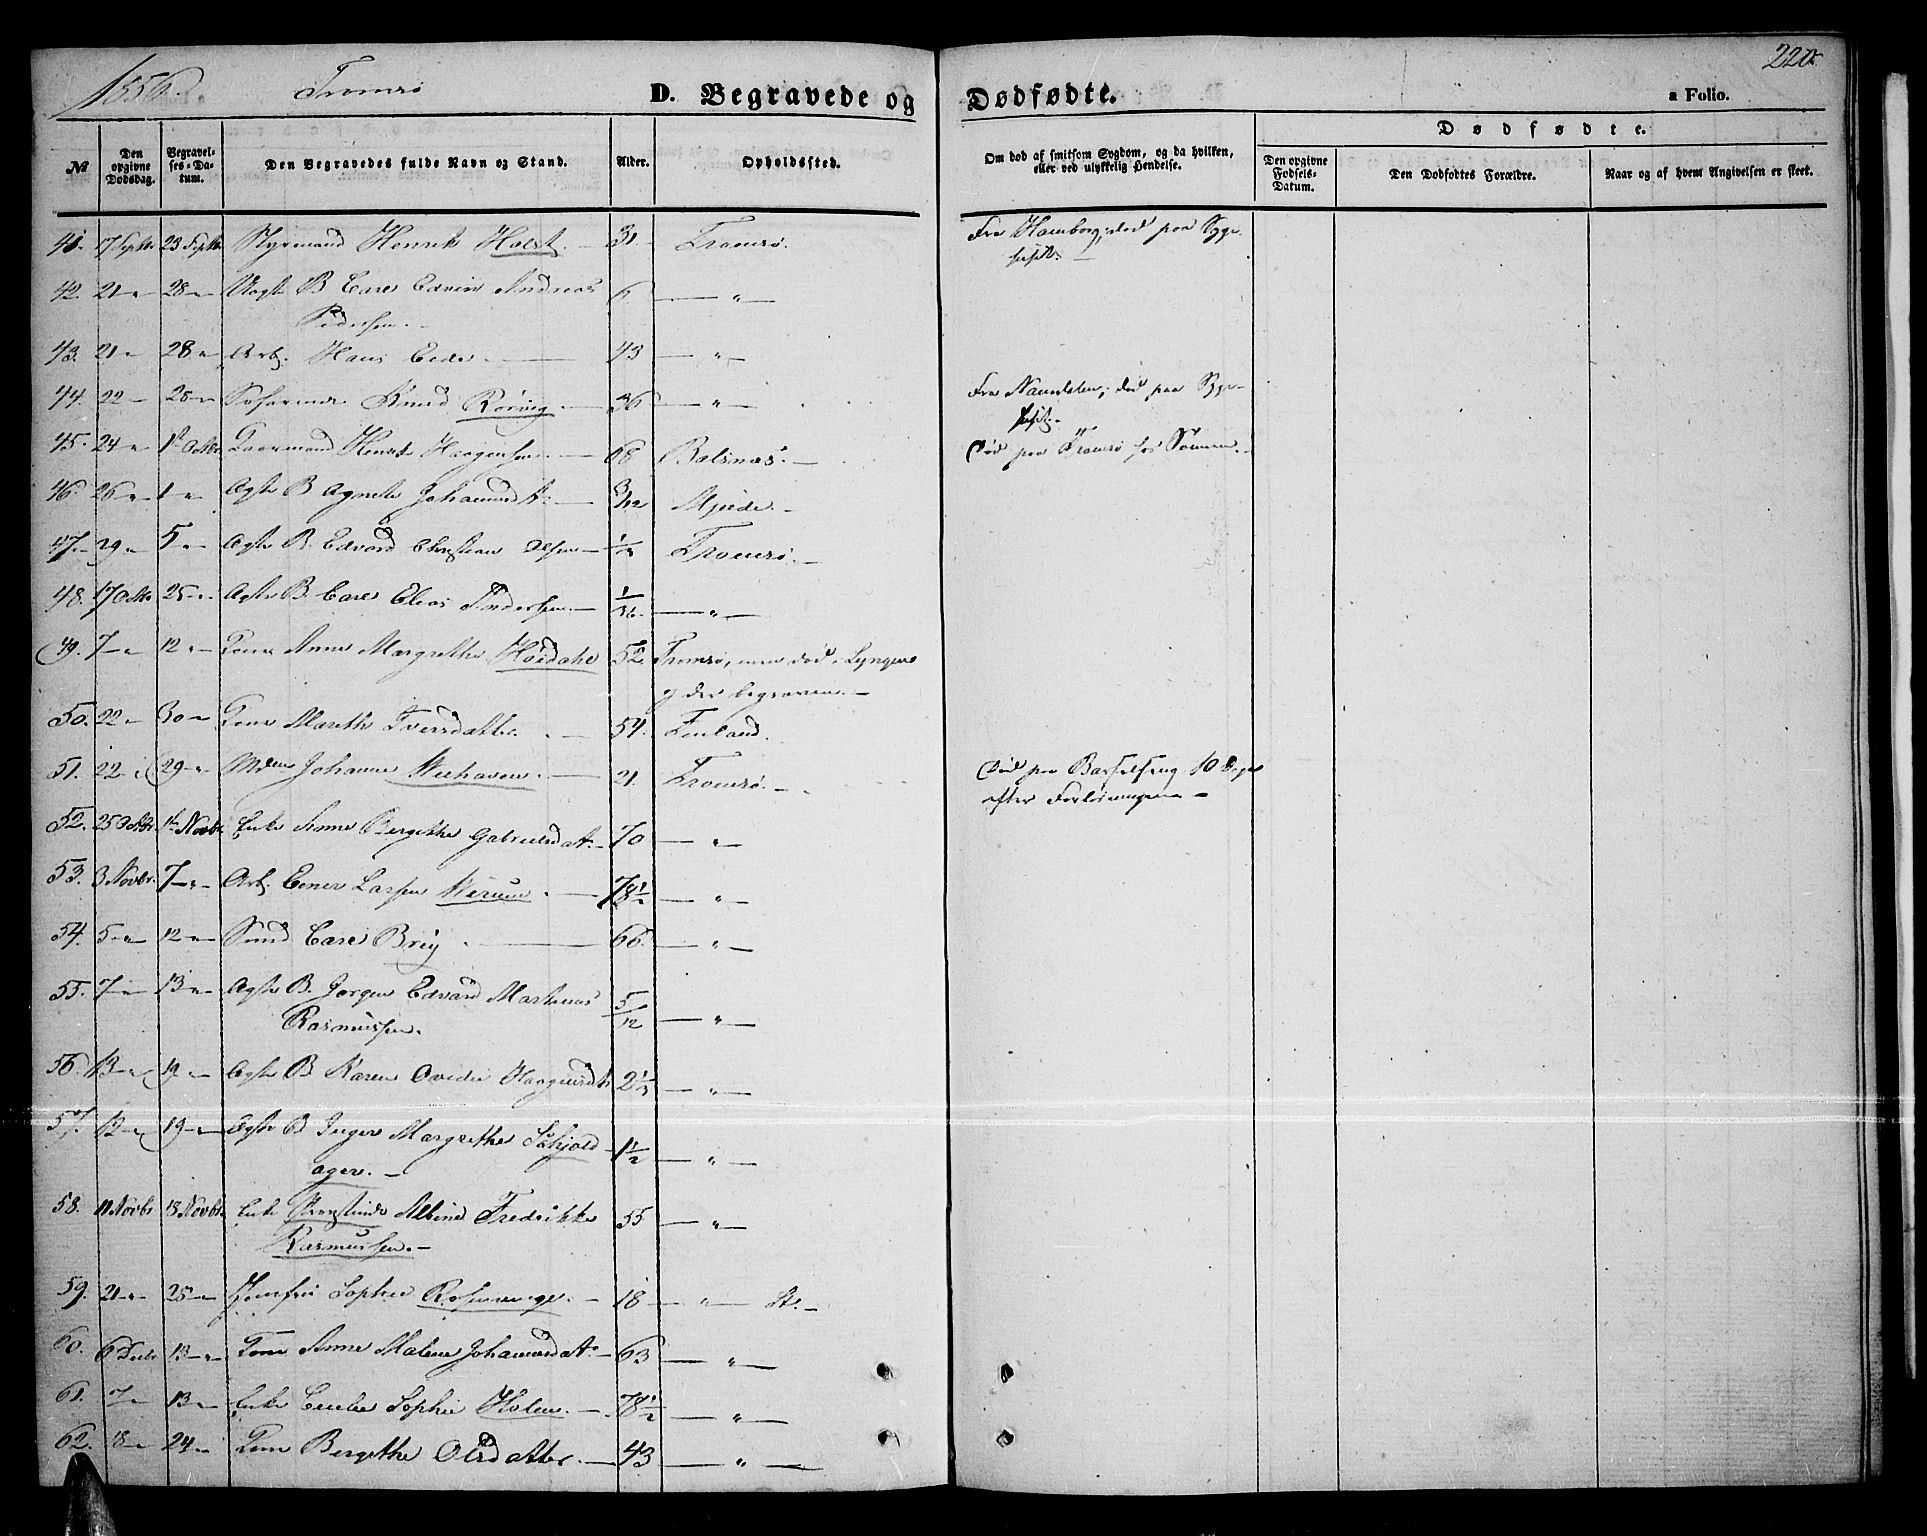 1856. Tromsø D. Begravede og Dødfødte. 220 a Folio.
№ Den opgivne Dødsdag. Begravelses-Datum. Den Begravedes fulde Navn og Stand. Alder. Opholdssted. Om død af smitsom Sygdom, og da hvilken, eller ved ulykkelig Hendelse. Dødfødte.
Den opgivne Fødsels-Datum. Den Dødfødtes Forældre. Naar og af hvem Angivelsen er skeet.
41. 17 Septbr 23 Septbr Styrmand Henrik Holst. 31 Tromsø. Fra Hamborg, død paa Syge-
42. 21 " 28 " B Carl Edvin Andreas 6 "
Pedersen.
43. 21 " 28 " Arb. Hans 43 "
44. 22 28 Knud Rørvig 36 " Fra Namdalen, død paa Syge-
45. 24 " 1ste Octbr Henrik Haagensen 68 Balsnæs. Død paa Tromsø hos Sønnen.
46. 26 " 1 " Ægte B Agnete Johannesd A. 3/12 Mjelde.
47. 29 " 5 " Ægte B. Edvard Christian Olsen Tromsø.
48. 17 Octbr 25 " Ægte B. Carl Elias Andersen "
49. 7 " 12 " Kone Anne Margrethe Høidahl 52. Tromsø, men død i Lyngen
og der begraven.
50. 22 " 30 " Kone Marith Iversdatter. 54. Finland.
51. 22 29 " Johanne 21. Tromsø. Død paa Barselseng 10 Dage
efter Forløsningen
52. 25 Octbr. 1ste Novbr Enke Anne Bergithe Gabrielsd A. 70 "
53. 3 Novbr. 7 " Arb. Larsen 78½ "
54. 5 " 12 " Carl Brig 66. "
55. 7 " 13 " Ægte B. Jørgen Edvard Martinus 5/12 "
Rasmussen.
56. 13 " 19 " Ægte B Karen Ovidie "
57. 12 " 19 " Ægte B Inger Margrethe Schjold- 1½ "
ager.
58. 11 Novbr 18 Novbr Enke Albine Fredrikke 55 "
Rasmussen.
59. 21 " 25 " Jomfru Sophie 18 "
60. 6 Decbr 13 " Kone Anne Malene Johannesd A. 63 "
61. 7 13 Enke Cecilie Sophie Holm. 78½ "
62. 18 24 Kone Bergithe Olsdatter. 43 "